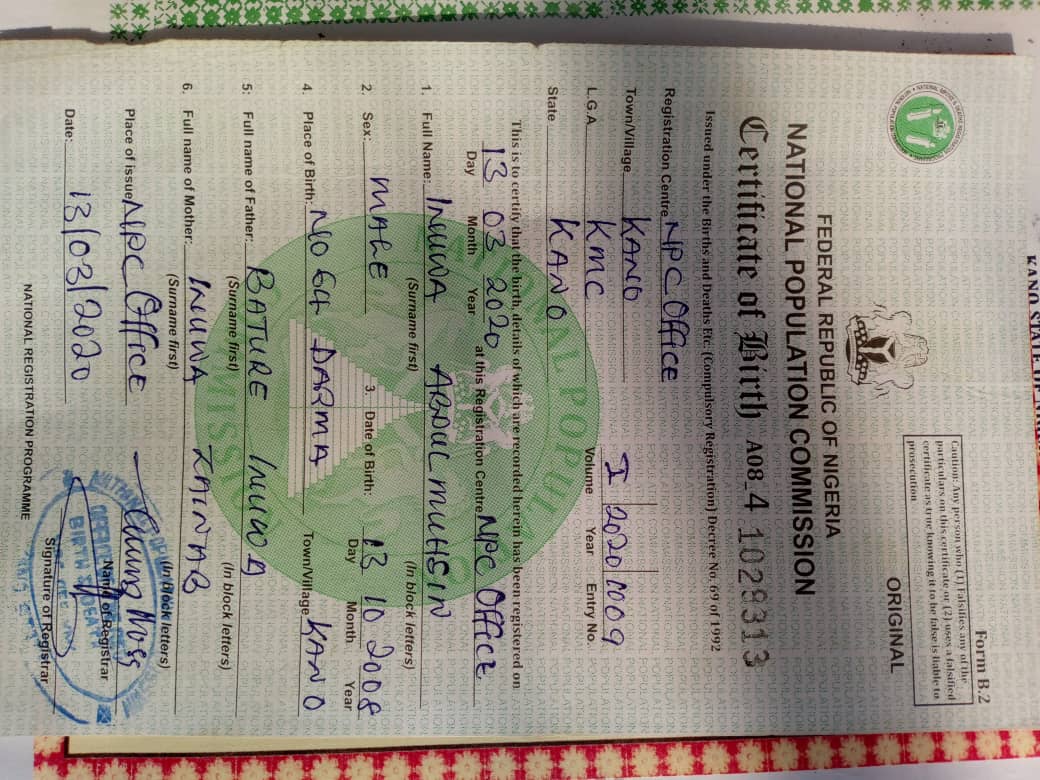 Form B.2
Caution: Any person who (1) Falsifies any of the
particulars on this certificate or (2) uses a falsified
certificate as true knowing it to be false is liable to
prosecution
ORIGINAL
FEDERAL REPUBLIC OF NIGERIA
NATIONAL POPULATION COMMISSION
Certificate of Birth A08.4 1029313
Issued under the Births and Deaths Etc. (Compulsory Registration) Decree No. 69 of 1992
Registration Centre NPC Office
Town/Village KANO I 2020 1009
L.G.A KMC Volume Year Entry No.
State KANO
This is to certify that the birth, details of which are recorded herein has been registered on
13 03 2020 at this Registration Centre NPC Office
Day Month Year
1. Full Name: INUWA ABDULMUHSIN
(Surname first) (In block letters)
2 Sex: MALE 3. Date of Birth: 13 10 2008
Day Month Year
4. Place of Birth: NO 64 DARMA Town/Village KANO
5: Full name of Father: BATURE INUWA
(Surname first) (In block letters)
6. Full name of Mother: INUWA ZAINAB
(Surname first) (In Block letters)
Place of issue NPC Office
Name of Registrar
Date: 13/03/2020
Signature of Registrar
NATIONAL REGISTRATION PROGRAMME